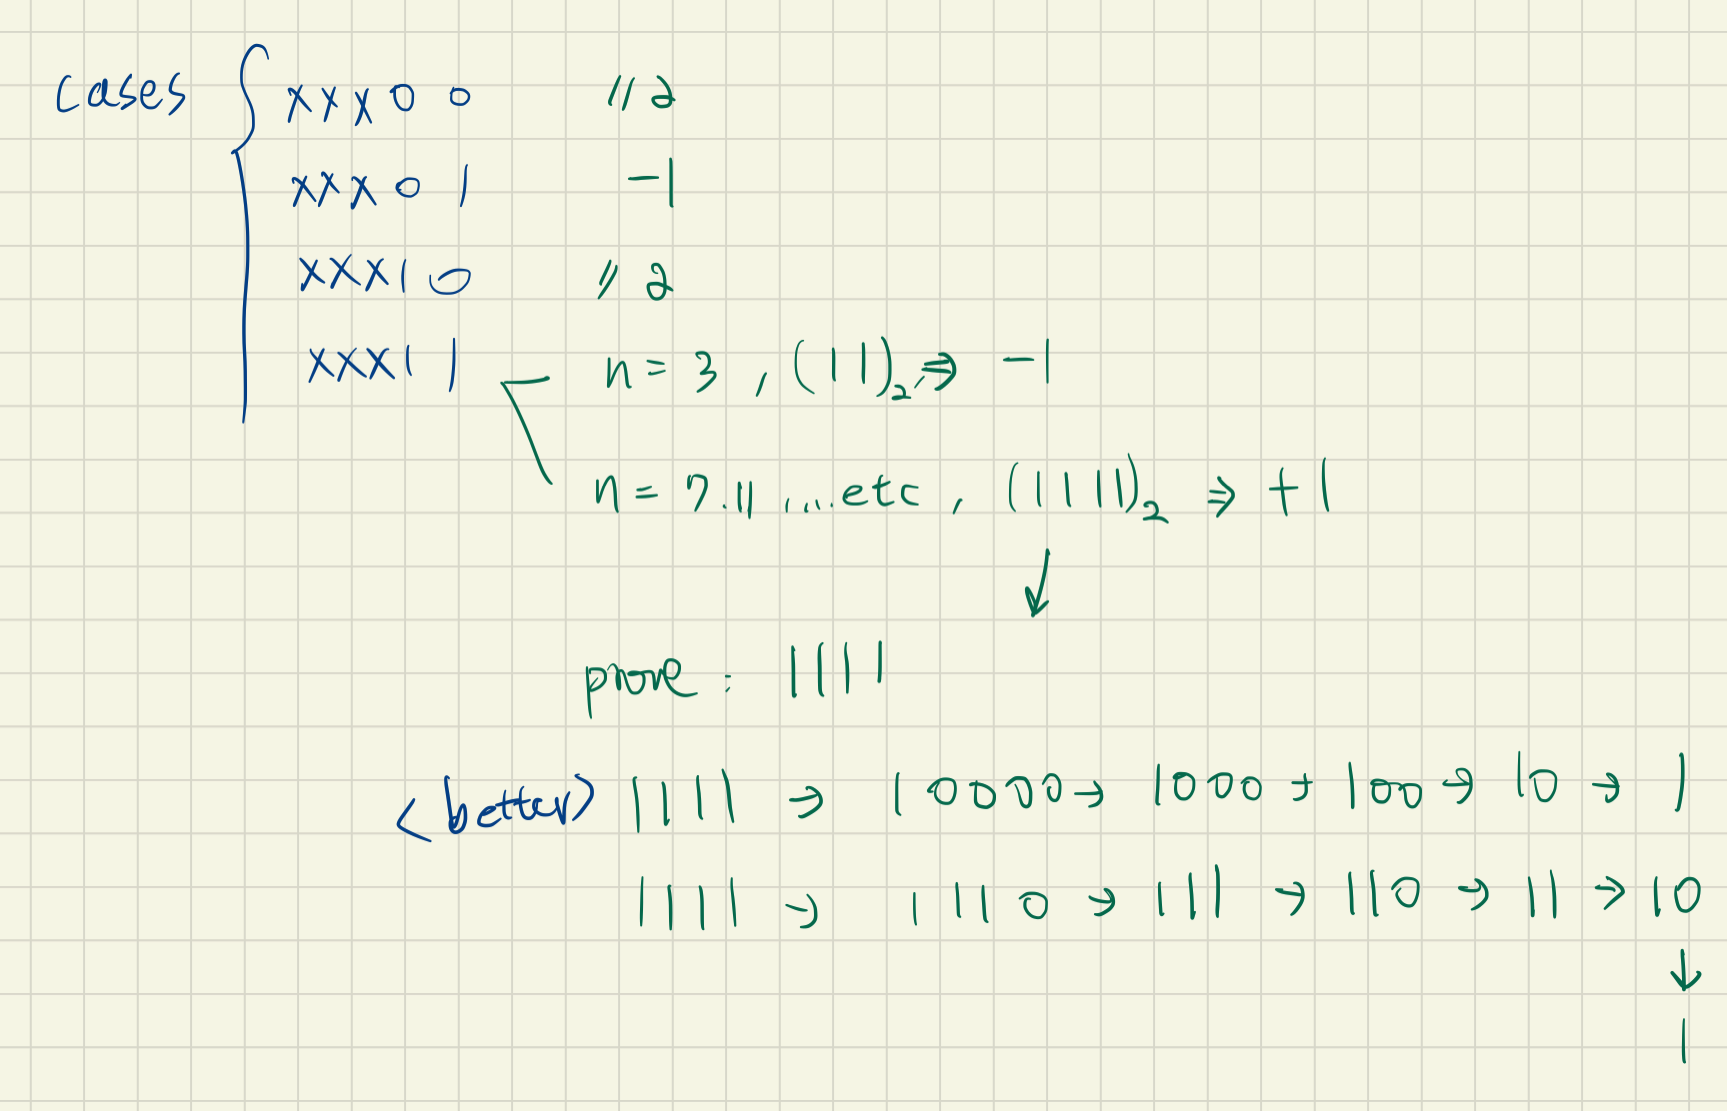 cases { xxx00 //2
xxx01 -1
xxx10 //2
xxx11 n = 3, (11)₂ ⇒ -1
n = 7.11 .... etc, (1111)₂ ⇒ +1
↓
prove : 1111
<better> 1111 → 10000 → 1000 → 100 → 10 → 1
1111 → 1110 → 111 → 110 → 11 → 10
↓
1